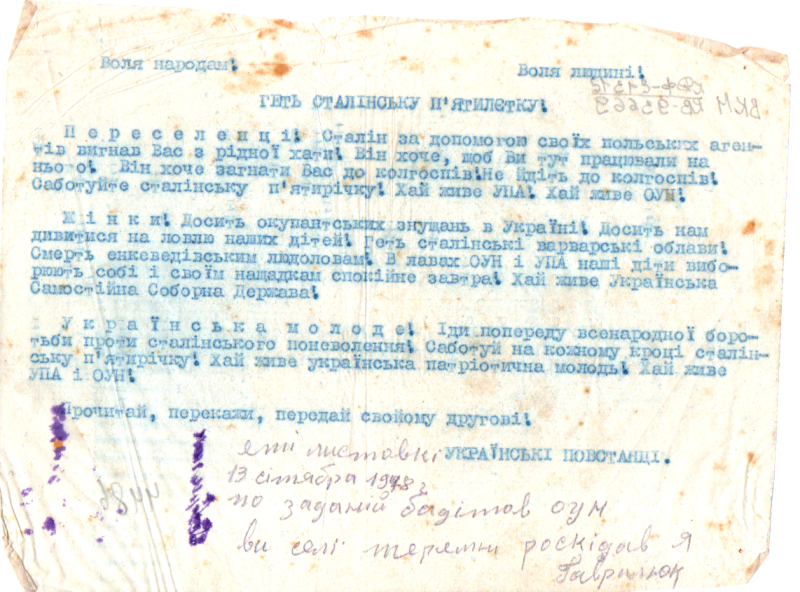 Воля народам!
Воля людині!
КВФ-С1312
ВКМ КВ-93669
ГЕТЬ СТАЛІНСЬКУ П'ЯТИЛЕТКУ!
П е р е с е л е н ц і! Сталін за допомогою своїх польських аген-
тів вигнав Вас з рідної хати! Він хоче, щоб Ви тут працювали на
нього! Він хоче загнати Вас до колгоспів!Не йдіть до колгоспів!
Саботуйте сталінську п'ятирічку! Хай живе УПА! Хай живе ОУН!
Ж і н к и! Досить окупантських знущань в Україні! Досить нам
дивитися на ловлю наших дітей! Геть сталінські варварські облави!
Смерть енкеведівським людоловам! В лавах ОУН і УПА наші діти вибо-
рюють собі і своїм нащадкам спокійне завтра! Хай живе Українська
Самостійна Соборна Держава!
У к р а ї н с ь к а м о л о д е! Іди попереду всенародної боро-
тьби проти сталінського поневолення! Саботуй на кожному кроці сталін-
ську п'ятирічку! Хай живе українська патріотична молодь! Хай живе
УПА і ОУН!
Прочитай, перекажи, передай свойому другові!
УКРАЇНСЬКІ ПОВСТАНЦІ.
еті листовкі
13 сітября 1948 г
по заданій бадітов ОУН
ви селі теремни роскідав я
Гаврилюк